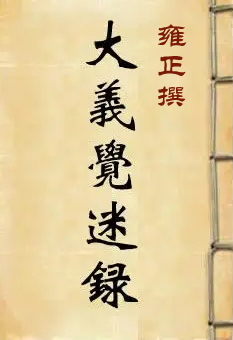 雍正撰
大義覺迷録